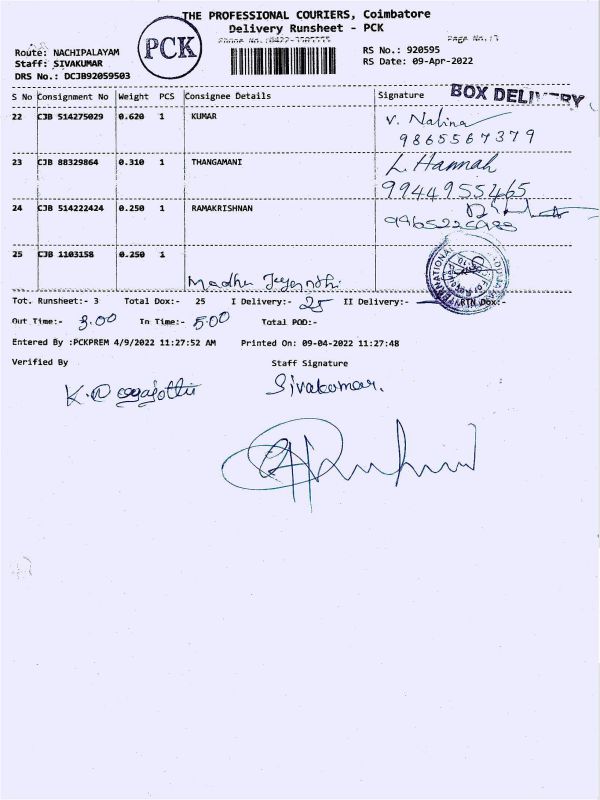 THE PROFESSIONAL COURIERS, Coimbatore
Delivery Runsheet - PCK
PCK
Page No.:
Route: NACHIPALAYAM
Staff: SIVAKUMAR
DRS No.: DCJB92059503
RS No.: 920595
RS Date: 09-Apr-2022
S No Consignment No Weight PCS Consignee Details Signature
BOX DELIVERY
22 CJB 514275029 0.620 1 KUMAR V. Nalina
9865567379
23 CJB 88329864 0.310 1 THANGAMANI L. Hannah
9944955465
24 CJB 514222424 0.250 1 RAMAKRISHNAN
25 CJB 1103158 0.250 1
Madhu
Tot. Runsheet:- 3 Total Dox:- 25 I Delivery:- 25 II Delivery:- RTN Dox:-
Out Time:- 3.00 In Time:- 5.00 Total POD:-
Entered By :PCKPREM 4/9/2022 11:27:52 AM Printed On: 09-04-2022 11:27:48
Verified By Staff Signature
Sivakumar.